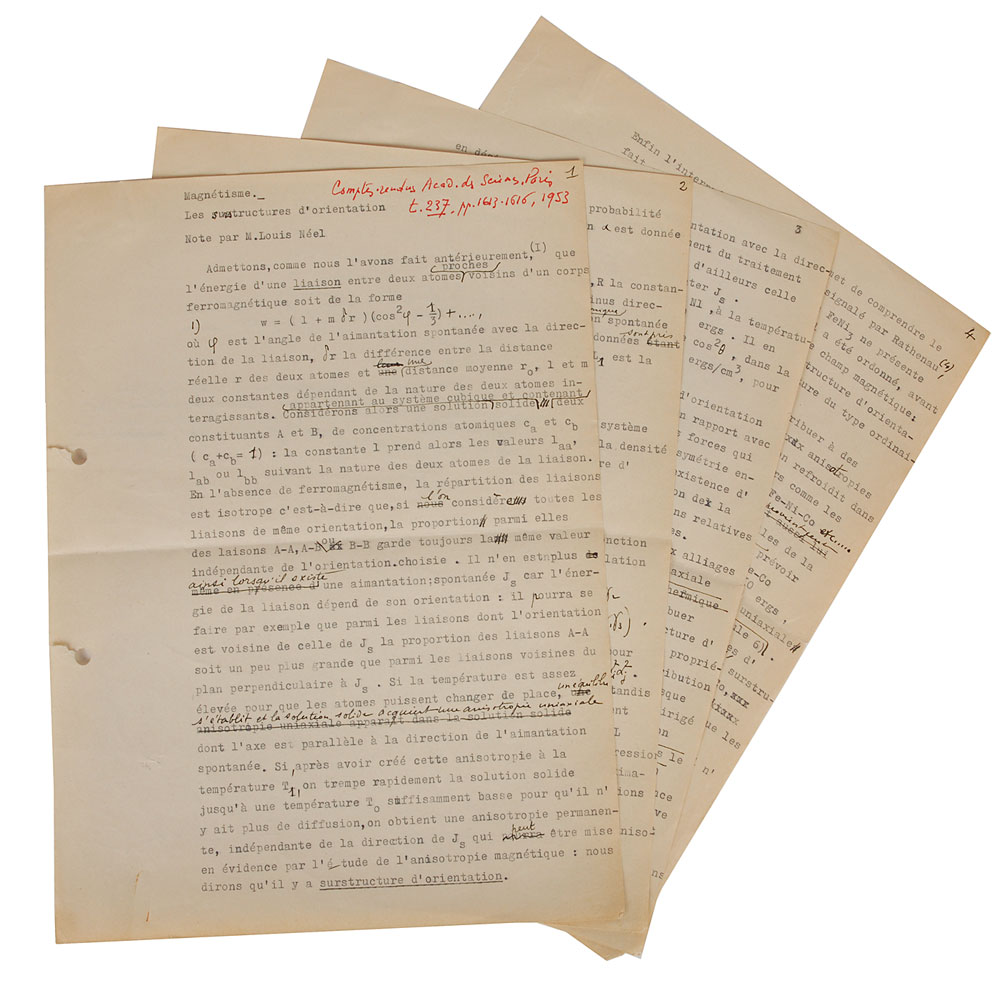 1
Magnétisme._
Comptes-rendus Acad. des Sciences, Paris
t. 237, pp. 1613-1616, 1953
Les surstructures d'orientation
Note par M.Louis Néel
Admettons,comme nous l'avons fait antérieurement,(I) que
l'énergie d'une liaison entre deux atomes proches voisins d'un corps
ferromagnétique soit de la forme
1) w = ( l + m δr )(cos²φ - 1/3) + ....,
où φ est l'angle de l'aimantation spontanée avec la direc-
tion de la liaison, δr la différence entre la distance
réelle r des deux atomes et une distance moyenne r₀, l et m
deux constantes dépendant de la nature des deux atomes in-
appartenant au système cubique et contenant
teragissants. Considérons alors une solution solide deux
constituants A et B, de concentrations atomiques ca et cb
( ca+cb= 1) : la constante l prend alors les valeurs laa,
lab ou lbb suivant la nature des deux atomes de la liaison.
En l'absence de ferromagnétisme, la répartition des liaisons
est isotrope c'est-à-dire que,si l'on nous considère toutes les
liaisons de même orientation,la proportion parmi elles
des laisons A-A,A-B ou B-B garde toujours la même valeur
indépendante de l'orientation.choisie . Il n'en estnplus
ainsi lorsqu'il existe
même en présence d'une aimantation;spontanée Js car l'éner-
gie de la liaison dépend de son orientation : il pourra se
faire par exemple que parmi les liaisons dont l'orientation
est voisine de celle de Js la proportion des liaisons A-A
soit un peu plus grande que parmi les liaisons voisines du
plan perpendiculaire à Js . Si la température est assez
élevée pour que les atomes puissent changer de place, un équilibre
s'établit et la solution solide acquiert une anisotropie uniaxiale
anisotropie uniaxiale apparaît dans la solution solide
dont l'axe est parallèle à la direction de l'aimantation
spontanée. Si,après avoir créé cette anisotropie à la
température T1,on trempe rapidement la solution solide
jusqu'à une température To suffisamment basse pour qu'il n'
y ait plus de diffusion,on obtient une anisotropie permanen-
te, indépendante de la direction de Js qui peut être mise
en évidence par l'étude de l'anisotropie magnétique : nous
dirons qu'il y a surstructure d'orientation.
2
probabilité
est donnée
,R la constan-
inus direc-
on spontanée
données étant
L est la
système
la densité
re d'
onction
lation
pour
ent
L
pression
ima-
ance
ions
aniso-
3
ntation avec la direc-
ment du traitement
d'ailleurs celle
ter Js .
N1 ,à la température
ergs . Il en
cos²θ, dans la
ergs/cm³, pour
d'orientation
n rapport avec
s forces qui
symétrie en-
existence d'
on de la
ns relatives
x alliages
axiale
hermique
buer
cture d'
proprié-
bution
esque
irigé
on
s le
4
Enfin l'inter
fait
et de comprendre le
signalé par Rathenau,(4)
FeNi3 ne présente
a été ordonné, avant
champ magnétique:
structure d'orienta-
ure du type ordinai-
ribuer à des
anisotropies
on refroidit dans
rs comme les
Fe-Ni-Co etc....
les de la
prévoir
e-Co
ergs ,
uniaxiale
es d'
surstru-
ue les
n'